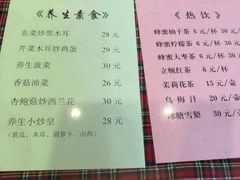 《养生素食》
韭菜炒黑木耳 28元
芹菜木耳炒鸡蛋 29元
养生菠菜 30元
香菇油菜 26元
杏鲍菇炒西兰花 30元
养生小炒皇 28元
(黄瓜、木耳、胡萝卜、山药)
《热饮》
蜂蜜柚子茶 6元/杯 30元/
蜂蜜柠檬茶 6元/杯 30元/
蜂蜜大枣茶 6元/杯 30元/
立顿红茶 6元/杯
茉莉花茶 15元/壶
乌梅汁 20元/壶
冰糖雪梨 30元/壶